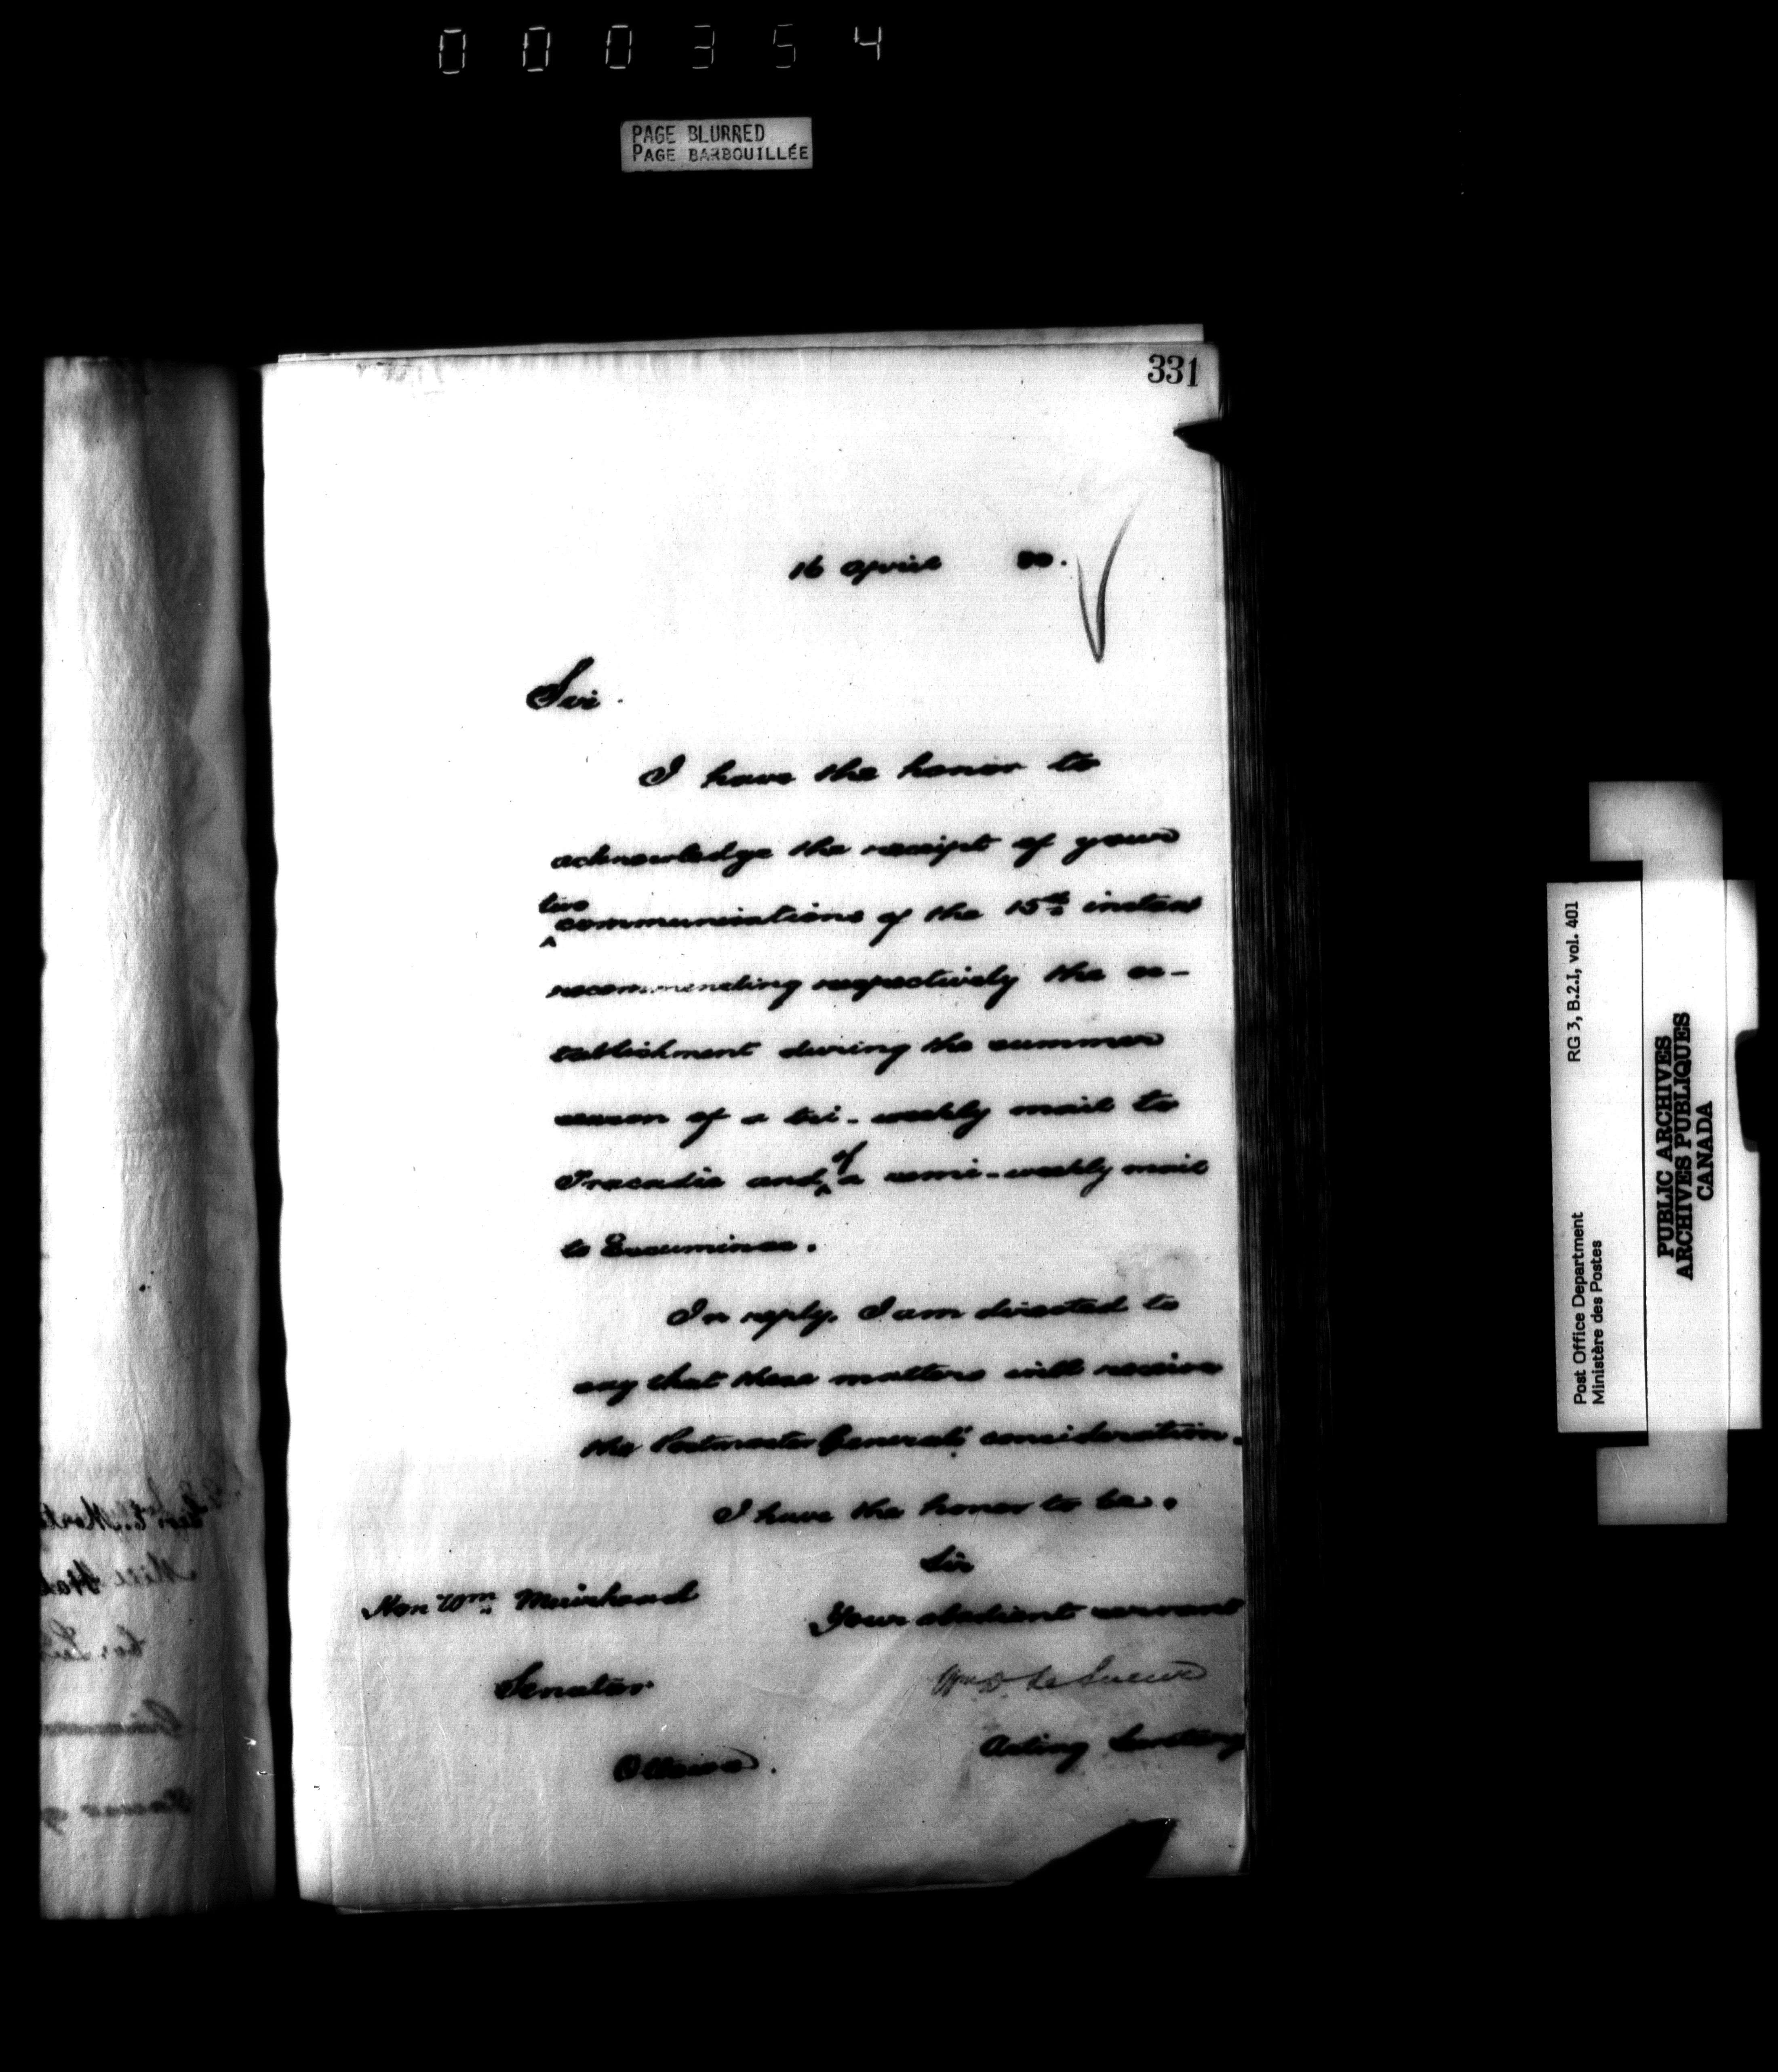 000354
PAGE BLURRED
PAGE BARBOUILLÉE
331
16 April 80.
Sir.
I have the honor to
acknowledge the receipt of your
two
communications of the 15th instant
recommending respectively the es-
tablishment during the summer
season of a tri-weekly mail to
Tracadie and of a semi-weekly mail
to Escuminac.
In reply, I am directed to
say that these matters will receive
the Postmaster General's consideration.
I have the honor to be.
Sir
Your obedient servant
Wm D. Le Sueur
Acting Secretary
Hon Wm Muirhead
Senator
Ottawa.
RG 3, B.2.I, vol. 401
Post Office Department
Ministère des Postes
PUBLIC ARCHIVES
ARCHIVES PUBLIQUES
CANADA